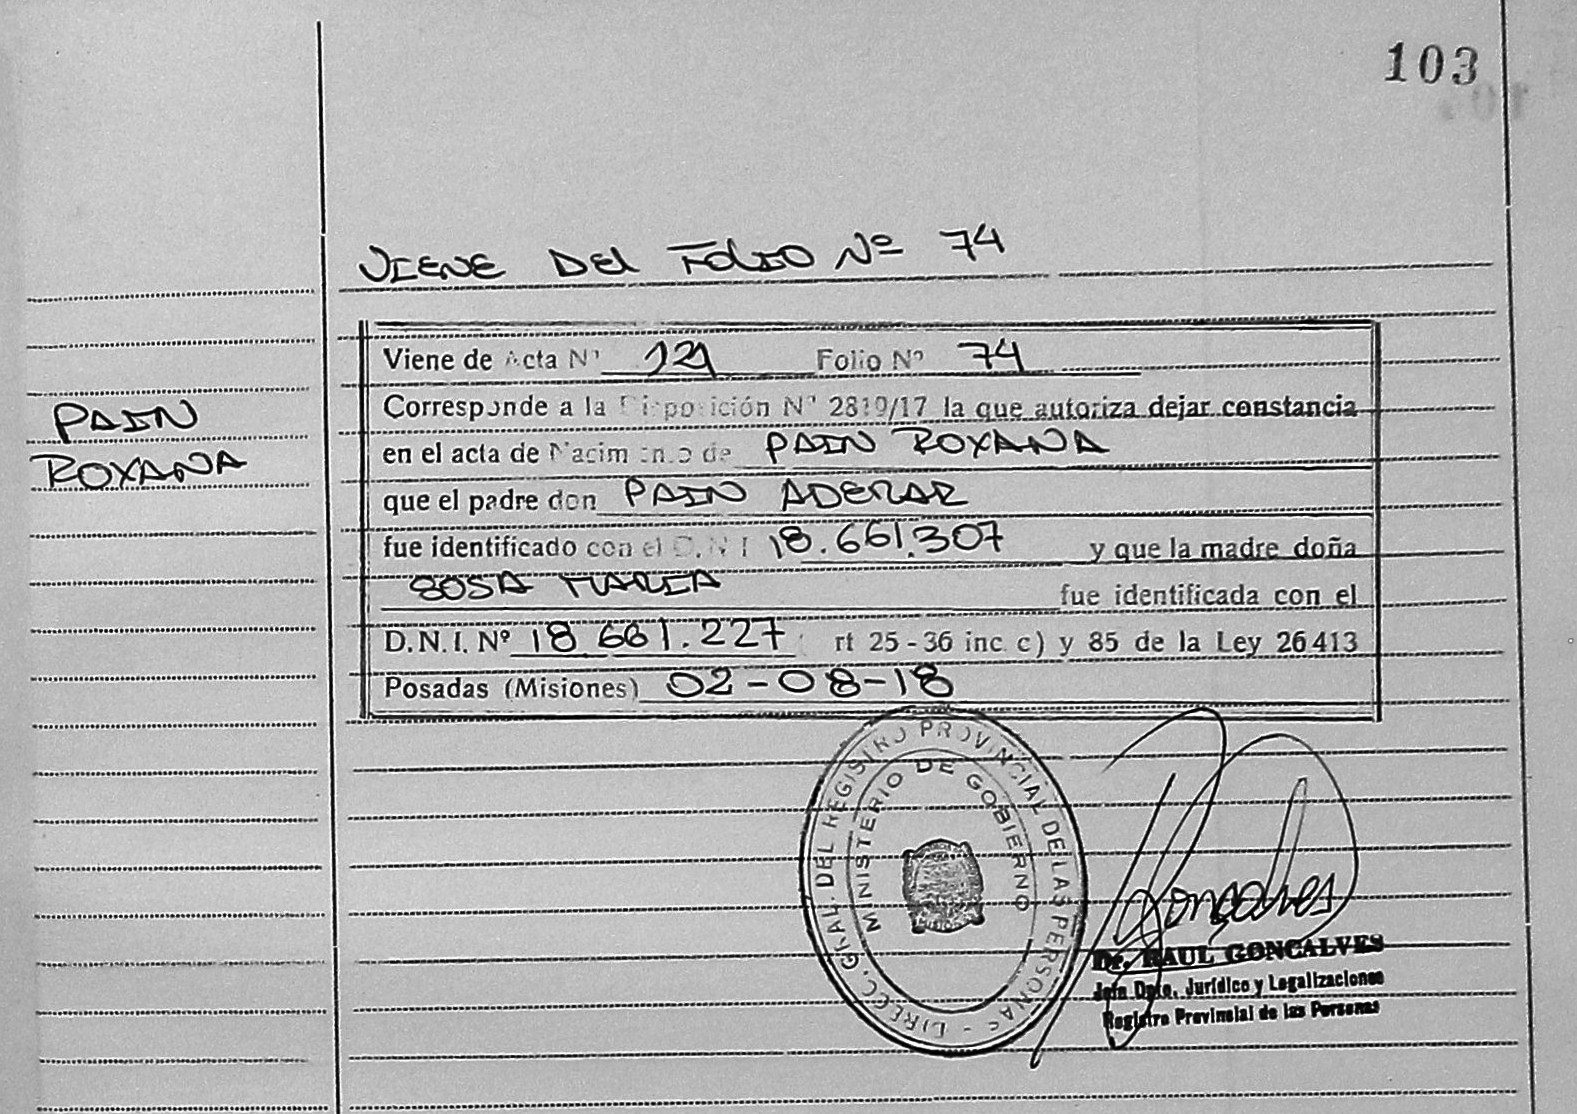 103
VIENE DEL FOLIO Nº 74
Viene de Acta Nº 121 Folio Nº 74
Corresponde a la Disposición Nº 2819/17 la que autoriza dejar constancia
en el acta de Nacimiento de PAIN ROXANA
que el padre don PAIN ADEMAR
fue identificado con el D.N.I 18.661.307 y que la madre doña
SOSA MARIA fue identificada con el
D.N.I. Nº 18 661.227 rt 25 - 36 inc. c) y 85 de la Ley 26413
Posadas (Misiones) 02-08-18
PAIN
ROXANA
DIRECC. GRAL. DEL REGISTRO PROVINCIAL DE LAS PERSONAS -
MINISTERIO DE GOBIERNO
Goncalves
Dr. RAUL GONCALVES
Jefe Dpto. Jurídico y Legalizaciones
Registro Provincial de las Personas